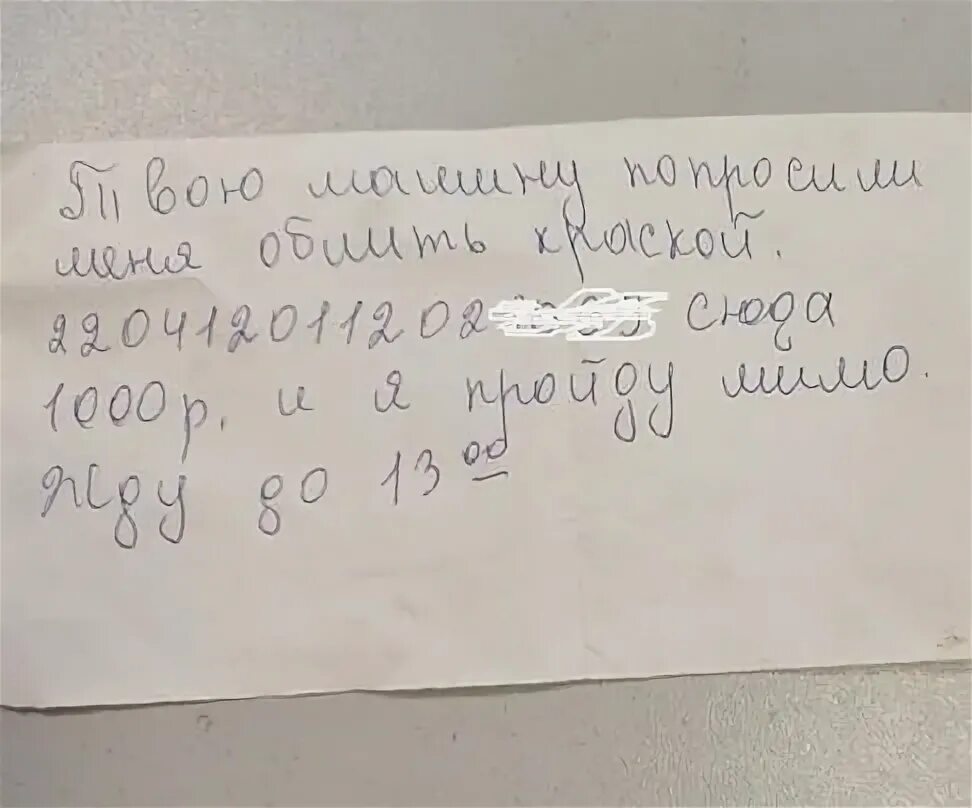 Твою машину попросили
меня облить краской.
220412011202 сюда
1000р. и я пройду мимо.
Жду до 13 00